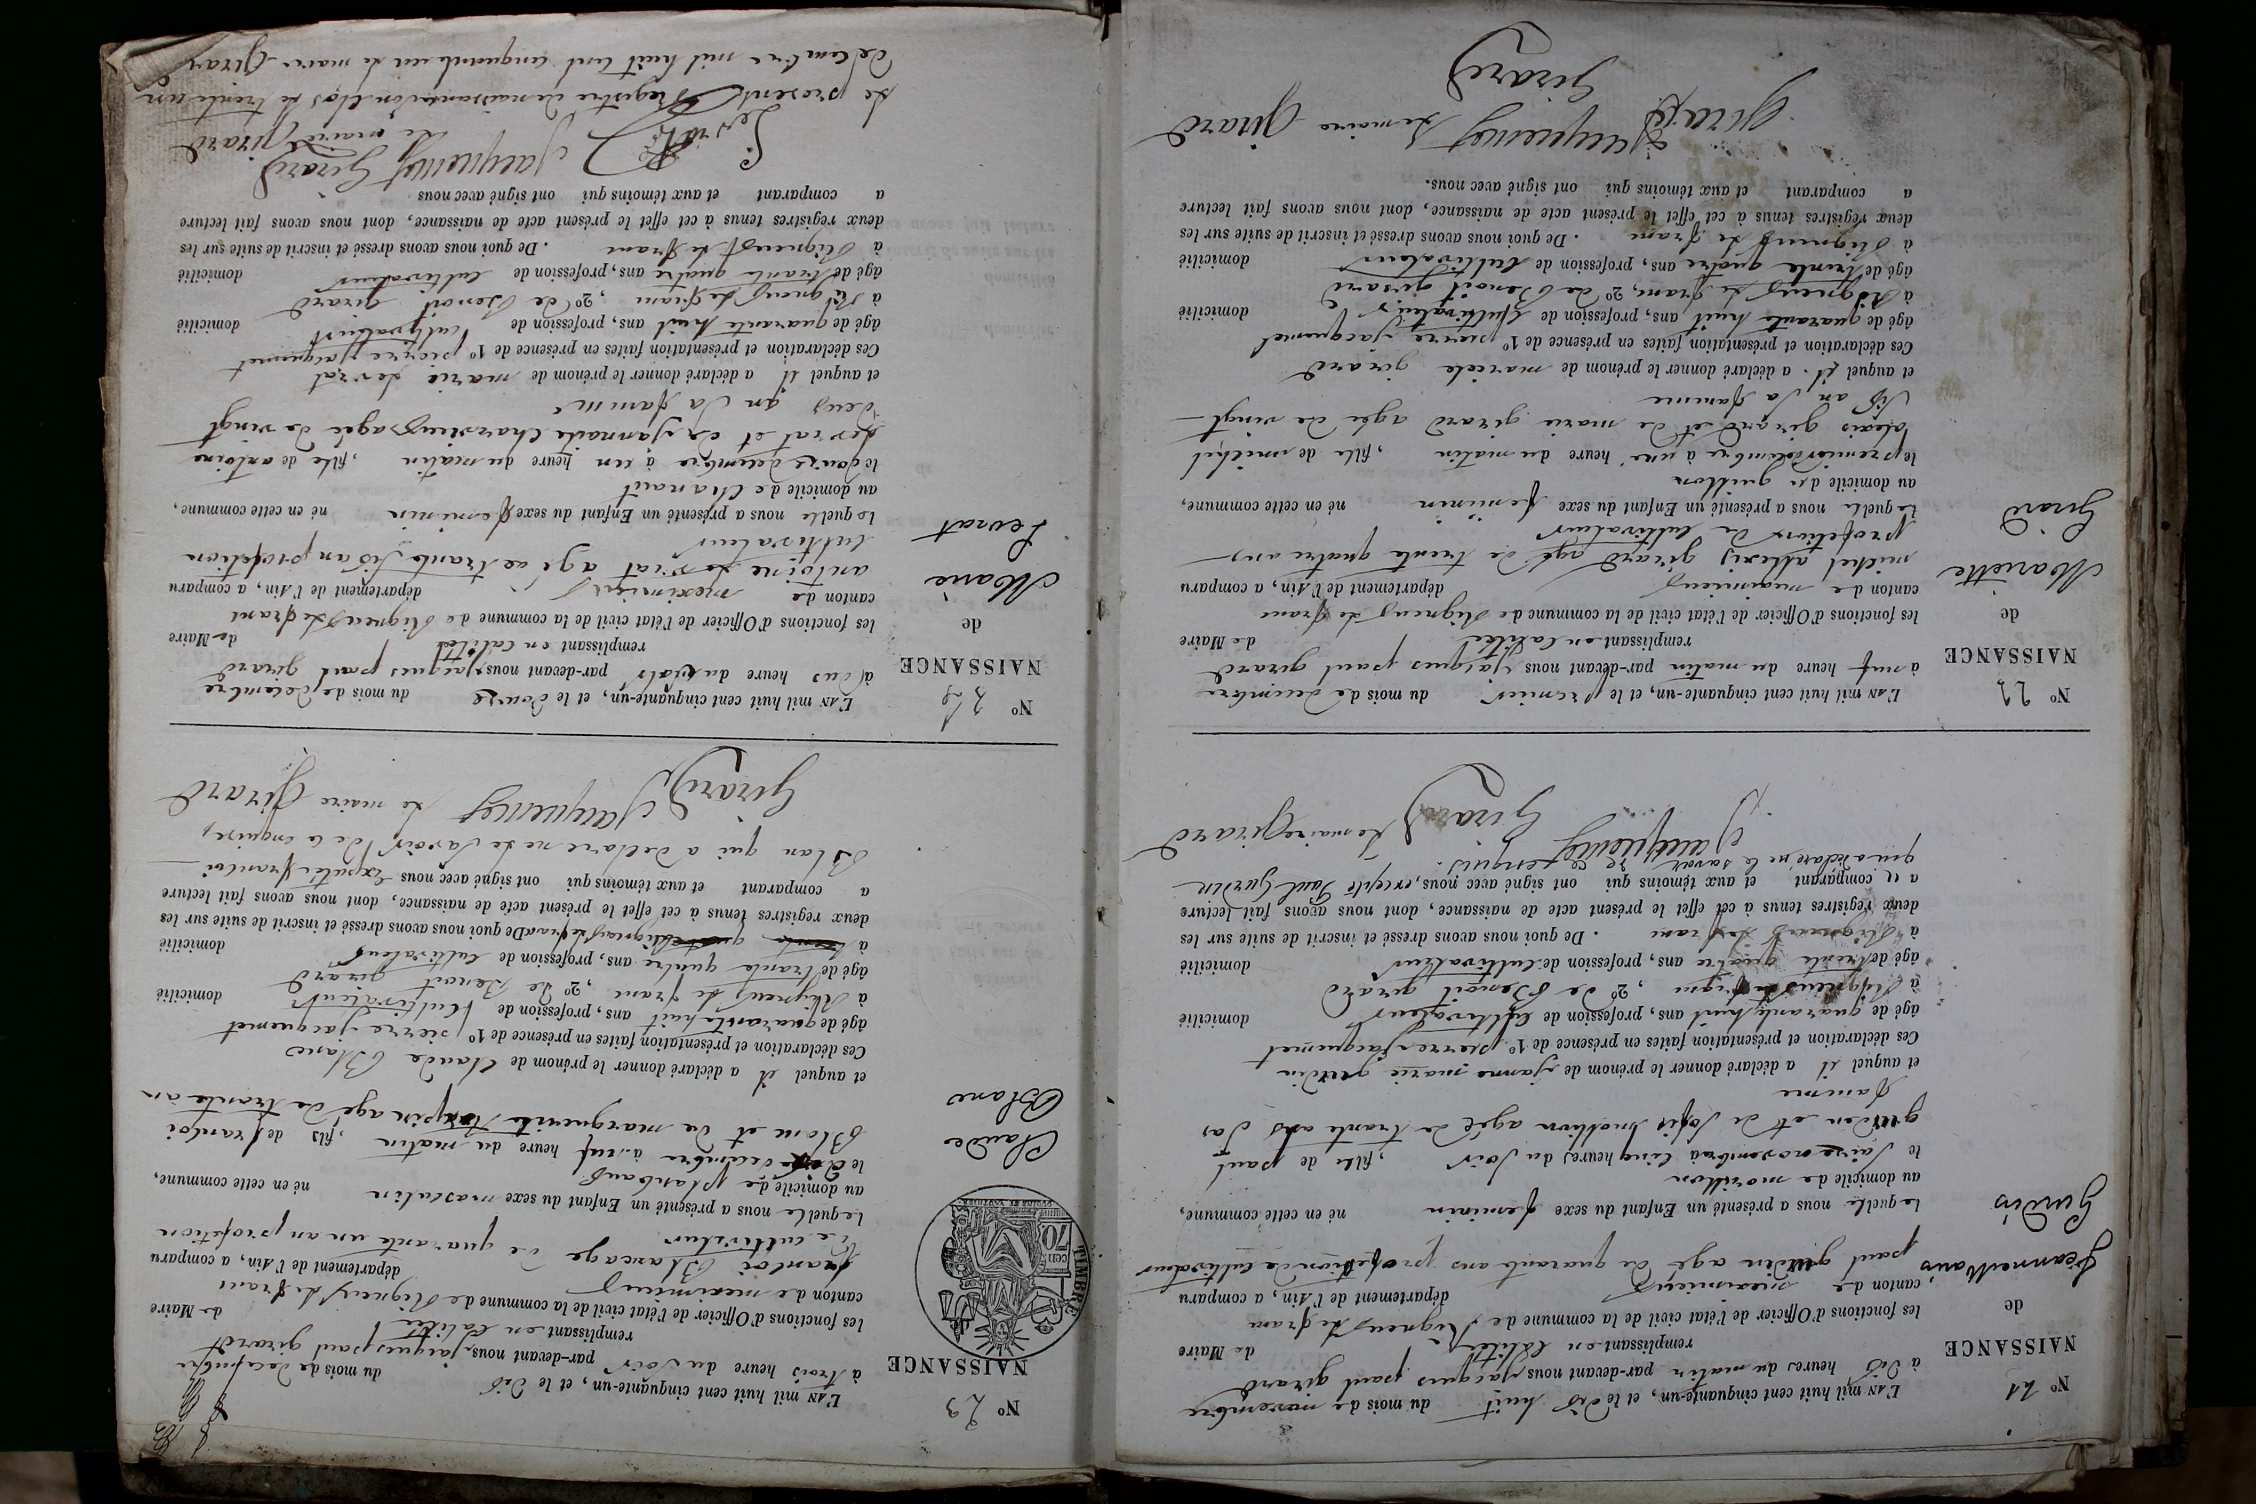 N° 21
NAISSANCE
de
Jeanne Marie
Gurdin
L'AN mil huit cent cinquante-un, et le dis huit du mois de novembre
à dis heures du matin par-devant nous jacques paul girard
remplissant en calités de Maire
les fonctions d'Officier de l'état civil de la commune de Rigneus le franc
canton de meximieus département de l'Ain, a comparu
paul gurdin age de quarante ans profesion de cultivateur
lequelle nous a présenté un Enfant du sexe feminin né en cette commune,
au domicile de morillon
le saize novembre à cinq heures du soir, fille de paul
gurdin et de agé de trante ans sa
famme
et auquel il a déclaré donner le prénom de janne marie gurdin
Ces déclaration et présentation faites en présence de 1° pierre jacquemet
âgé de quarante huit ans, profession de cultivateur domicilié
à Rigneus le franc, 2° de Benoit girard
âgé de trente quatre ans, profession de cultivateur domicilié
à Rigneus le franc. De quoi nous avons dressé et inscrit de suite sur les
deux registres tenus à cet effet le présent acte de naissance, dont nous avons fait lecture
au comparant et aux témoins qui ont signé avec nous, excepté Paul Gurdin
qui a déclaré ne le savoir de ce enquis.
Jacquemet Girard le maire girard
N° 22
NAISSANCE
de
Mariette
Girard
L'AN mil huit cent cinquante-un, et le premier du mois de decembre
à neuf heure du matin par-devant nous jacques paul girard
remplissant en calités de Maire
les fonctions d'Officier de l'état civil de la commune de Rigneus le franc
canton de meximieus département de l'Ain, a comparu
michel allexis girard agé de trente quatre ans
profetion de cultivateur
lequelle nous a présenté un Enfant du sexe feminin né en cette commune,
au domicile du guillon
le premier decembre à une heure du matin, fille de michel
alexis girard et de marie girard agée de vingt
sis an sa famme
et auquel il a déclaré donner le prénom de mariete girard
Ces déclaration et présentation faites en présence de 1° pierre jacquemet
âgé de quarante huit ans, profession de cultivateur domicilié
à Rigneus le franc, 2° de Benoit girard
âgé de trente quatre ans, profession de cultivateur domicilié
à Rigneus le franc. De quoi nous avons dressé et inscrit de suite sur les
deux registres tenus à cet effet le présent acte de naissance, dont nous avons fait lecture
a comparant et aux témoins qui ont signé avec nous.
girard Jacquemet le maire girard
Girard
N° 23
NAISSANCE
TIMBRE
70 cen
Claude
Blanc
L'AN mil huit cent cinquante-un, et le dis du mois de decembre
à trois heure du soir par-devant nous jacques paul girard
remplissant en calités de Maire
les fonctions d'Officier de l'état civil de la commune de Rigneus le franc
canton de meximieus département de l'Ain, a comparu
francoi Blanc age de quarante un an profetion
de cultivateur
lequelle nous a présenté un Enfant du sexe masculin né en cette commune,
au domicile de planbaud
le decembre à neuf heure du matin, fils de francoi
Blanc et de marguerite agé de trante an
et auquel il a déclaré donner le prénom de Claude Blanc
Ces déclaration et présentation faites en présence de 1° pierre jacquemet
âgé de quarante huit ans, profession de cultivateur domicilié
à Rigneus le franc, 2° de Benoit girard
âgé de trante quatre ans, profession de cultivateur domicilié
à Rigneus le franc De quoi nous avons dressé et inscrit de suite sur les
deux registres tenus à cet effet le présent acte de naissance, dont nous avons fait lecture
a comparant et aux témoins qui ont signé avec nous francoi
Blan qui a declare ne le savoir de ce enquire
Girard Jacquemet le maire girard
N° 24
NAISSANCE
de
Marie
Levrat
L'AN mil huit cent cinquante-un, et le douze du mois de decembre
à dus heure du soir par-devant nous jacques paul girard
remplissant en calités de Maire
les fonctions d'Officier de l'état civil de la commune de Rigneus le franc
canton de meximieus département de l'Ain, a comparu
antoine levrat agé de trante sis an profetion
cultivateur
lequelle nous a présenté un Enfant du sexe feminin né en cette commune,
au domicile de Chanaut
le douze decembre à un heure du matin, fille de antoine
levrat et de jannaite agée de vingt
deus an sa famme
et auquel il a déclaré donner le prénom de marie levrat
Ces déclaration et présentation faites en présence de 1° pierre jacquemet
âgé de quarante huit ans, profession de cultivateur domicilié
à Rigneus le franc, 2° de Benoit girard
âgé de trante quatre ans, profession de cultivateur domicilié
à Rigneus le franc. De quoi nous avons dressé et inscrit de suite sur les
deux registres tenus à cet effet le présent acte de naissance, dont nous avons fait lecture
a comparant et aux témoins qui ont signé avec nous
Levrat Jacquemet Girard le maire girard
Le present Registre de naissance clos le trente un
decembre mil huit cent cinquante un le maire girard